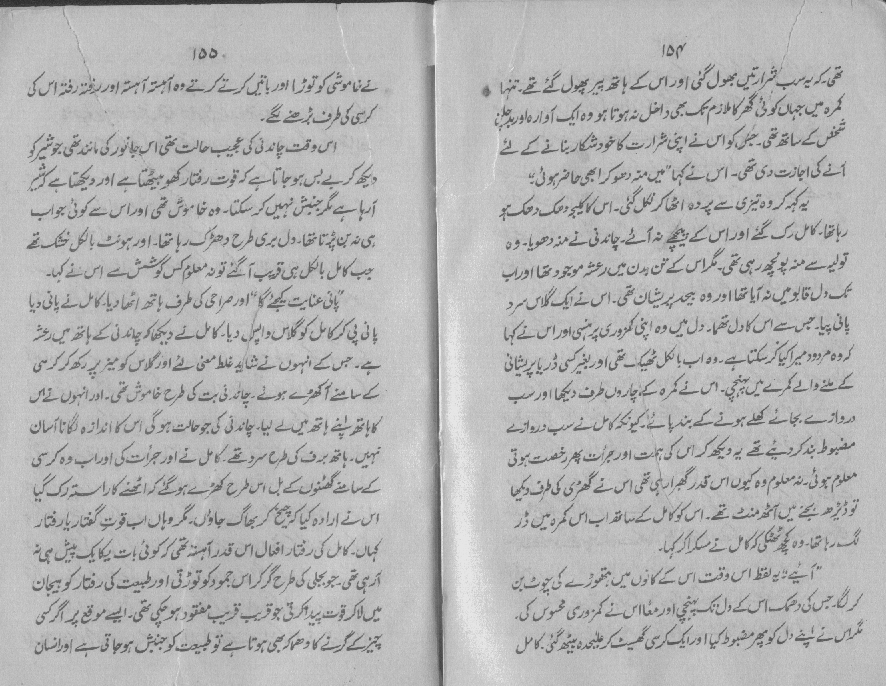 ۱۵۴
تھی۔ کہ یہ سب شرارتیں بھول گئی اور اس کے ہاتھ پیر پھول گئے تھے۔ تنہا
کمرہ میں جہاں کوئی گھر کا ملازم تک بھی داخل نہ ہوتا ہو وہ ایک آوارہ اور بدچلن
شخص کے ساتھ تھی۔ جس کو اس نے اپنی شرارت کا خود شکار بنانے کے لئے
آنے کی اجازت دی تھی۔ اس نے کہا "میں منہ دھو کر ابھی حاضر ہوئی"۔
یہ کہہ کر وہ تیزی سے پردہ اٹھا کر نکل گئی۔ اس کا کلیجہ دھک دھک ہو
رہا تھا۔ کامل رک گئے اور اس کے پیچھے نہ آئے۔ چاندنی نے منہ دھویا۔ وہ
تولیہ سے منہ پونچھ رہی تھی۔ مگر اس کے تن بدن میں رعشہ موجود تھا اور اب
تک دل قابو میں نہ آیا تھا اور وہ بیحد پریشان تھی۔ اس نے ایک گلاس سرد
پانی پیا۔ جس سے اس کا دل تھما۔ دل میں وہ اپنی کمزوری پر ہنسی اور اس نے کہا
کہ وہ مردود میرا کیا کر سکتا ہے۔ وہ اب بالکل ٹھیک تھی اور بغیر کسی ڈر یا پریشانی
کے ملنے والے کمرے میں پہنچی۔ اس نے کمرہ کے چاروں طرف دیکھا اور سب
دروازے بجائے کھلے ہونے کے بند پائے۔ کیونکہ کامل نے سب دروازے
مضبوط بند کر دیئے تھے یہ دیکھ کر اس کی ہمت اور جرأت پھر رخصت ہوتی
معلوم ہوئی۔ نہ معلوم وہ کیوں اس قدر گھبرا رہی تھی اس نے گھڑی کی طرف دیکھا
تو ڈیڑھ بجنے میں آٹھ منٹ تھے۔ اس کو کامل کے ساتھ اب اس کمرہ میں ڈر
لگ رہا تھا۔ وہ کچھ ٹھٹکی کہ کامل نے مسکرا کر کہا۔
"آئیے" یہ لفظ اس وقت اس کے کانوں میں ہتھوڑے کی چوٹ بن
کر لگا۔ جس کی دھمک اس کے دل تک پہنچی اور معاً اس نے کمزوری محسوس کی۔
مگر اس نے اپنے دل کو پھر مضبوط کیا اور ایک کرسی گھسیٹ کر علیحدہ بیٹھ گئی۔ کامل
۱۵۵
نے خاموشی کو توڑا اور باتیں کرتے کرتے وہ آہستہ آہستہ اور رفتہ رفتہ اس کی
کرسی کی طرف بڑھنے لگے۔
اس وقت چاندنی کی عجیب حالت تھی اس جانور کی مانند تھی جو شیر کو
دیکھ کر بے بس ہو جاتا ہے کہ قوت رفتار کھو بیٹھتا ہے اور دیکھتا ہے کہ شیر
آرہا ہے مگر جنبش نہیں کر سکتا۔ وہ خاموش تھی اور اس سے کوئی جواب
ہی نہ بن پڑتا تھا۔ دل بری طرح دھڑک رہا تھا۔ اور ہونٹ بالکل خشک تھے
جب کامل بالکل ہی قریب آ گئے تو نہ معلوم کس کوشش سے اس نے کہا۔
"پانی عنایت کیجئے گا" اور صراحی کی طرف ہاتھ اٹھا دیا۔ کامل نے پانی دیا
پانی پی کر کامل کو گلاس واپس دیا۔ کامل نے دیکھا کہ چاندنی کے ہاتھ میں رعشہ
ہے۔ جس کے انہوں نے شاید غلط معنی لئے اور گلاس کو میز پر رکھ کر کرسی
کے سامنے آ کھڑے ہوئے۔ چاندنی بت کی طرح خاموش تھی۔ اور انہوں نے اس
کا ہاتھ اپنے ہاتھ میں لے لیا۔ چاندنی کی جو حالت ہو گی اس کا اندازہ لگانا آسان
نہیں۔ ہاتھ برف کی طرح سرد تھے۔ کامل نے اور جرأت کی اور اب وہ کرسی
کے سامنے گھٹنوں کے بل اس طرح کھڑے ہو گئے کہ اٹھنے کا راستہ رک گیا
اس نے ارادہ کیا کہ چیخ کر بھاگ جاؤں۔ مگر وہاں اب قوت گفتار یا رفتار
کہاں۔ کامل کی رفتار افعال اس قدر آہستہ تھی کہ کوئی بات یکایک پیش ہی نہ
آ رہی تھی۔ جو بجلی کی طرح گر کر اس جمود کو توڑتی اور طبیعت کی رفتار کو ہیجان
میں لا کر قوت پیدا کرتی جو قریب قریب مفقود ہو چکی تھی۔ ایسے موقع پر اگر کسی
چیز کے گرنے کا دھماکہ بھی ہوتا ہے تو طبیعت کو جنبش ہو جاتی ہے اور انسان